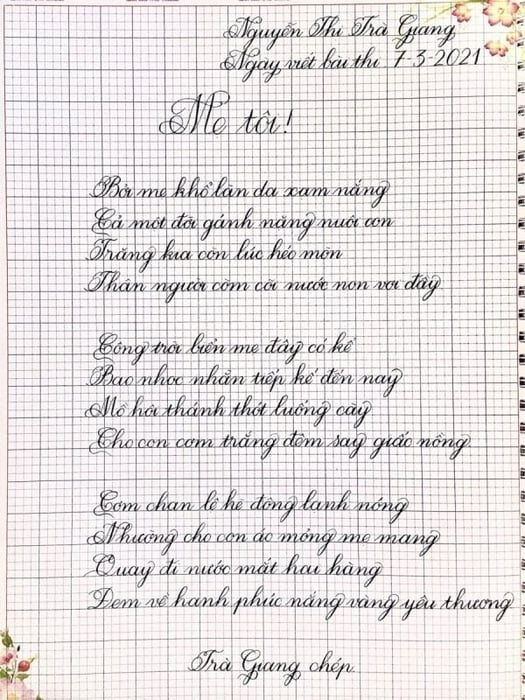 Nguyễn Thị Trà Giang
Ngày viết bài thi 7-3-2021
Mẹ tôi!
Bởi mẹ khổ làn da xạm nắng
Cả một đời gánh nặng nuôi con
Trăng kia còn lúc héo mòn
Thân người còm cõi nước non vơi đầy
Công trời biển mẹ đây có kể
Bao nhọc nhằn tiếp kế đến nay
Mồ hôi thánh thót luống cày
Cho con cơm trắng đêm say giấc nồng
Cơm chan lệ hè đông lạnh nóng
Nhường cho con áo mỏng mẹ mang
Quay đi nước mắt hai hàng
Đem về hạnh phúc nắng vàng yêu thương
Trà Giang chép.